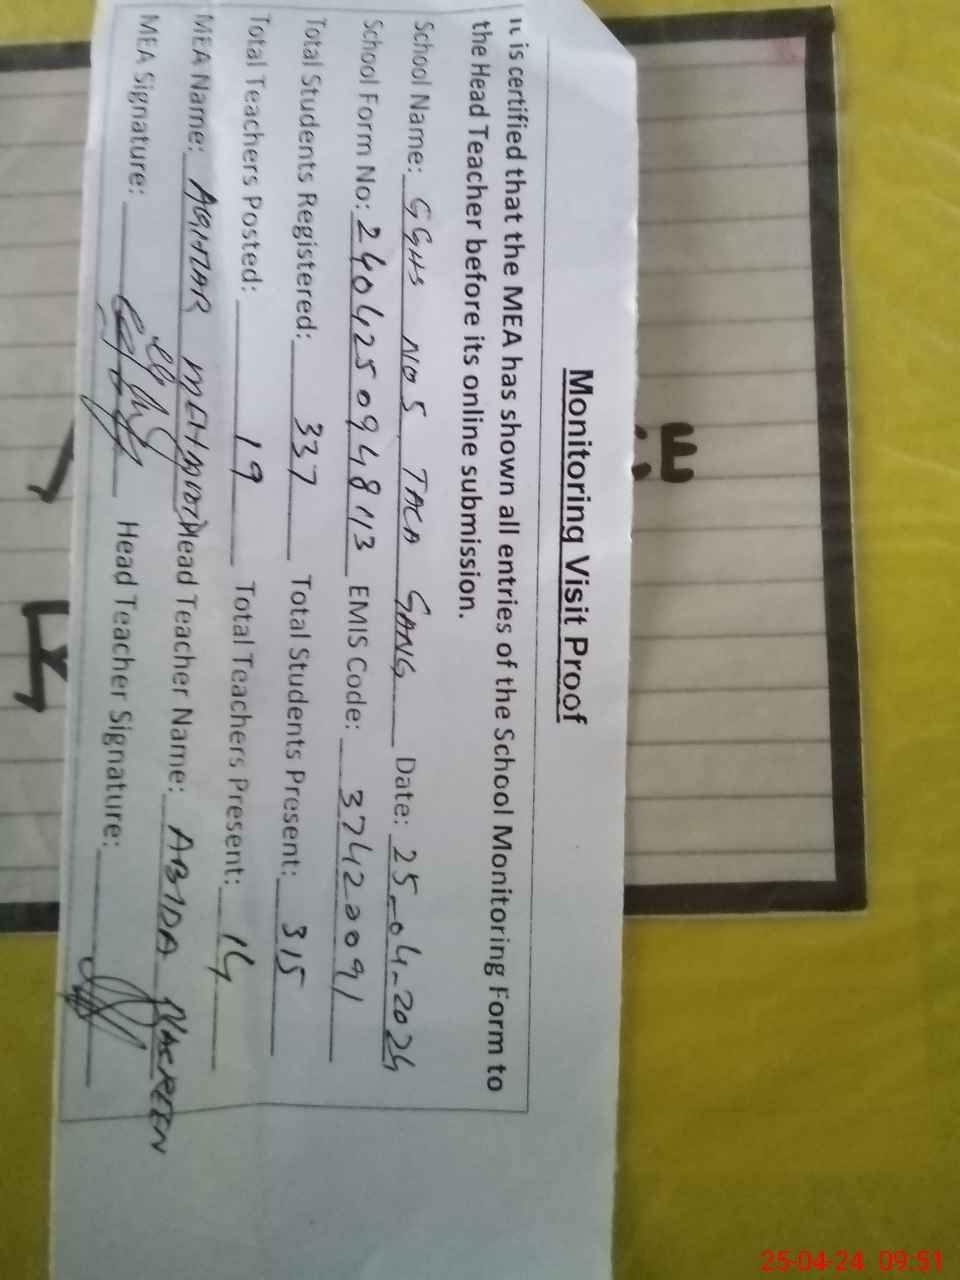 Monitoring Visit Proof
It is certified that the MEA has shown all entries of the School Monitoring Form to
the Head Teacher before its online submission.
School Name: GGHS NO 5 TACA GANG Date: 25-04-2024
School Form No: 24042509948113 EMIS Code: 37420091
Total Students Registered: 337 Total Students Present: 315
Total Teachers Posted: 19 Total Teachers Present: 14
MEA Name: MEHMOOD Head Teacher Name: ABIDA NASREEN
MEA Signature: Head Teacher Signature:
25-04-24 09:51